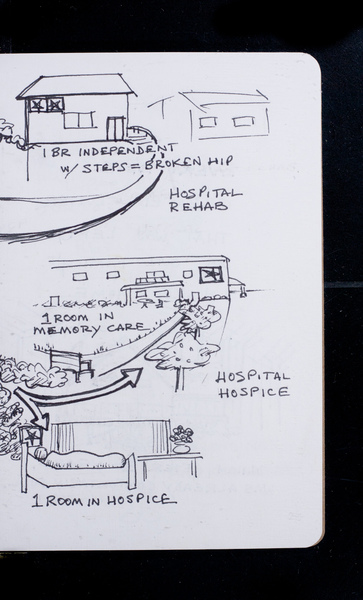 1 BR INDEPENDENT
W/ STEPS = BROKEN HIP
HOSPITAL
REHAB
1 ROOM IN
MEMORY CARE
HOSPITAL
HOSPICE
1 ROOM IN HOSPICE